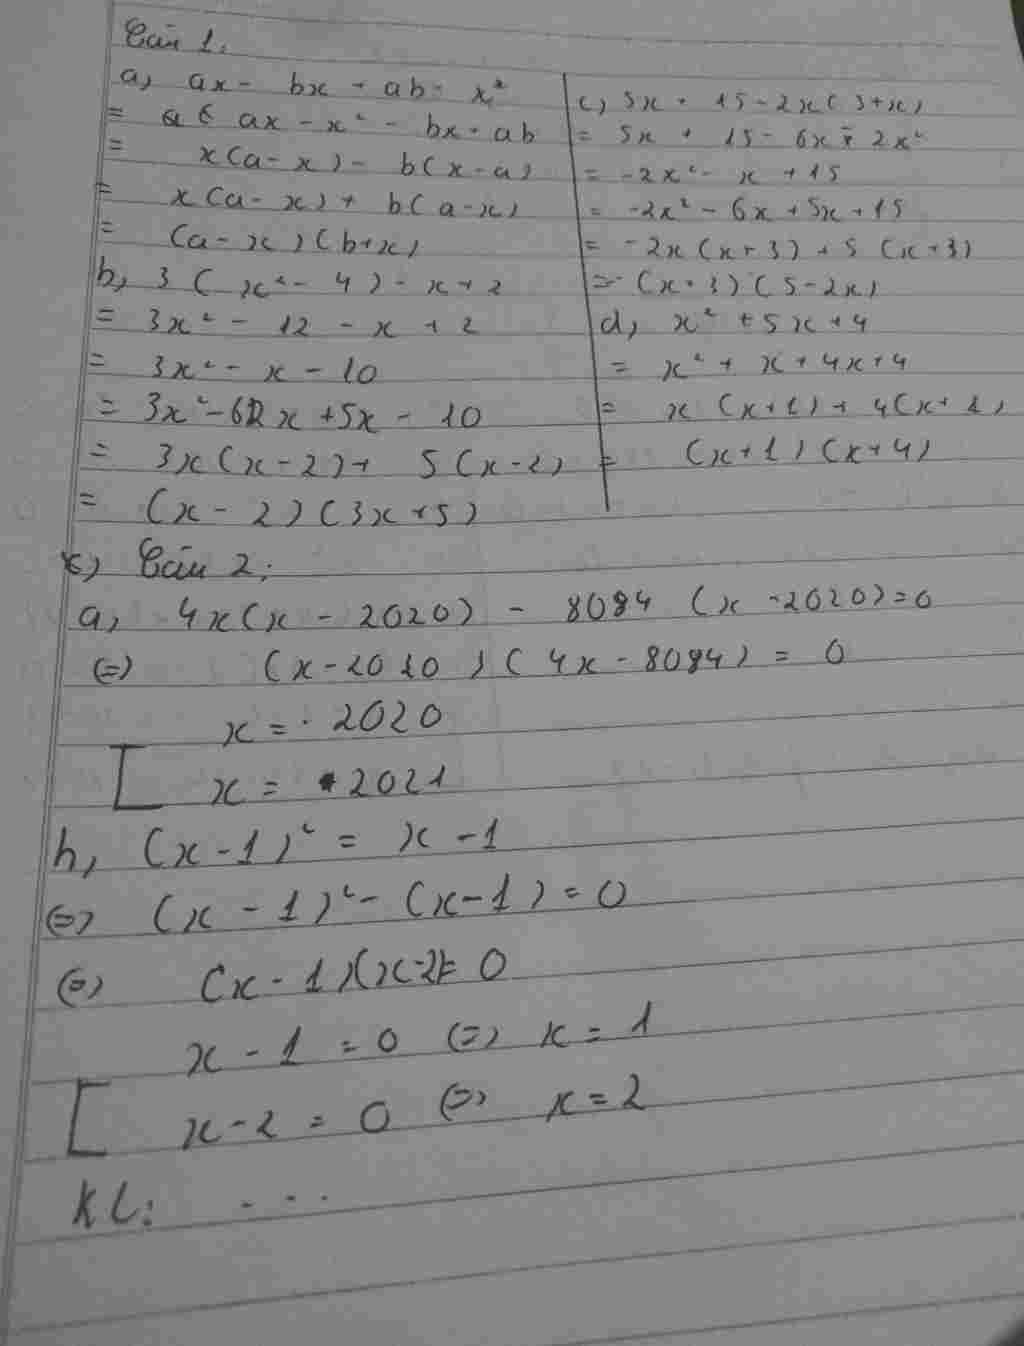 Câu 1:
a, ax - bx + ab - x²
= ax - x² - bx + ab
= x(a-x) - b(x-a)
= x(a-x) + b(a-x)
= (a-x)(b+x)
b, 3(x²-4) - x + 2
= 3x² - 12 - x + 2
= 3x² - x - 10
= 3x² - 6x + 5x - 10
= 3x(x-2) + 5(x-2)
= (x-2)(3x+5)
c, 5x + 15 - 2x(3+x)
= 5x + 15 - 6x - 2x²
= -2x² - x + 15
= -2x² - 6x + 5x + 15
= -2x(x+3) + 5(x+3)
= (x+3)(5-2x)
d, x² + 5x + 4
= x² + x + 4x + 4
= x(x+1) + 4(x+1)
= (x+1)(x+4)
c) Câu 2:
a, 4x(x-2020) - 8084(x-2020)=0
(=) (x-2020)(4x-8084) = 0
x = 2020
[ x = 2021
b, (x-1)² = x-1
(=) (x-1)² - (x-1) = 0
(=) (x-1)(x-2)= 0
x-1 = 0 (=) x = 1
[ x-2 = 0 (=) x = 2
KL: ...